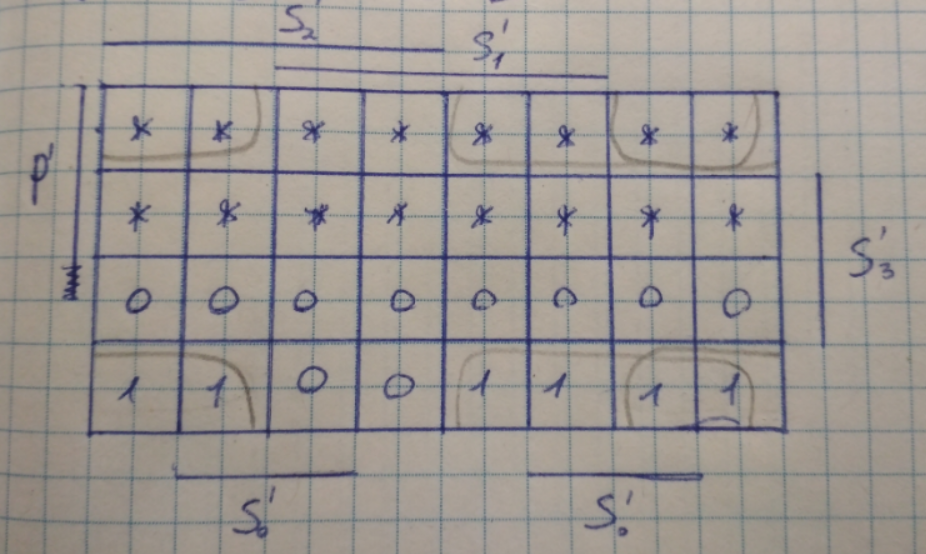 S₂'
S₁'
* * * * * * * *
* * * * * * * *
S₃'
0 0 0 0 0 0 0 0
1 1 0 0 1 1 1 1
S₀' S₀'